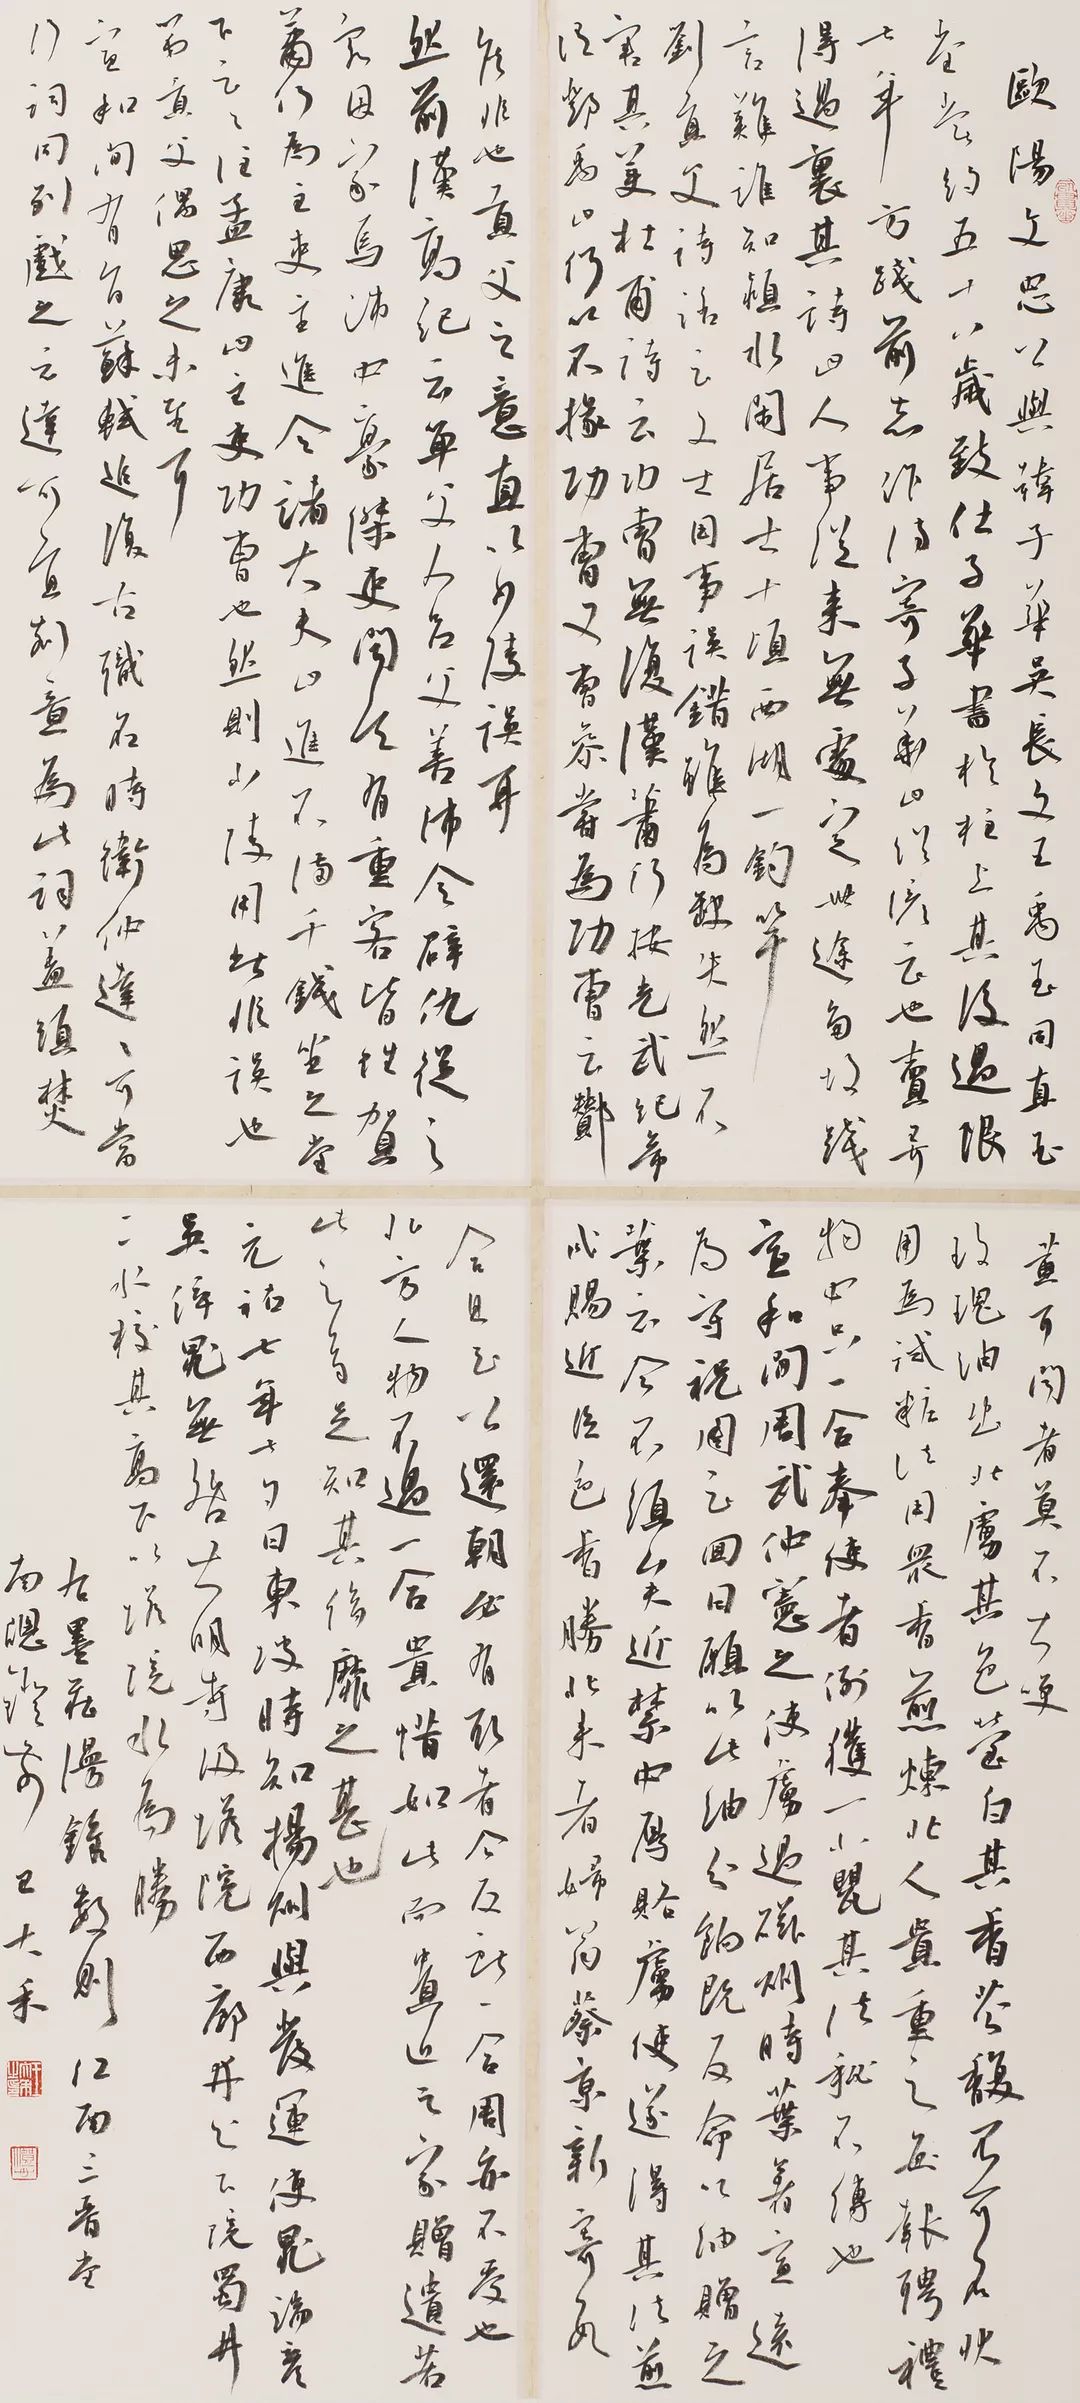 歐陽文忠公與韓子華吳長文王禹玉同直玉
堂嘗約五十八歲致仕子華書於柱上其後過限
七年方踐前志作詩寄子華曰俗諺云也賣弄
得過裏其詩曰人事從來無處定世途多故踐
言難誰知潁水閑居士十頃西湖一釣竿
劉貢父詩話云文士用事誤錯雖為缺失然不
害其美杜甫詩云功曹無復漢蕭何按光武紀帝
謂鄧禹曰何以不掾功曹又曹參嘗為功曹云酇
侯非也貢父之意直以少陵誤耳
然前漢高紀云單父人呂父善沛令辟仇從之
客因家焉沛中豪傑吏聞令有重客皆往賀
蕭何為主吏主進令諸大夫曰進不滿千錢坐之堂
下云々注孟康曰主吏功曹也然則少陵用此非誤也
第貢父偶思之未至耳
宣和間有旨蘇軾追復古職名時衛仲達々可當
行詞同列戲之云達可宜刻意為此詞蓋須焚
黃可聞者莫不大哽
玫瑰油出北虜其色瑩白其香芬馥不可名狀
用為試粧法用眾香煎煉北人貴重之每報聘禮
物中只一合奉使者例獲一小甖其法秘不傳也
宣和間周武仲憲之使虜過磁州時葉著宣遠
為守祝周云回日願以此油分餉既反命以油贈之
葉云今不須矣近禁中厚賂虜使遂得其法煎
成賜近臣色香勝北來者婦翁蔡京新寄數
合且云公還朝必有取者今反獻一合周亦不受也
北方人物不過一合貴惜如此而貴近之家贈遺若
此之多足知其侈靡之甚也
元祐七年七夕日東坡時知揚州與發運使晁端彥
吳倅晁無咎大明寺汲塔院西廊井與下院蜀井
二水校其高下以塔院水為勝
右墨莊漫錄數則 江西三晉堂
南窗鐙前 王大禾